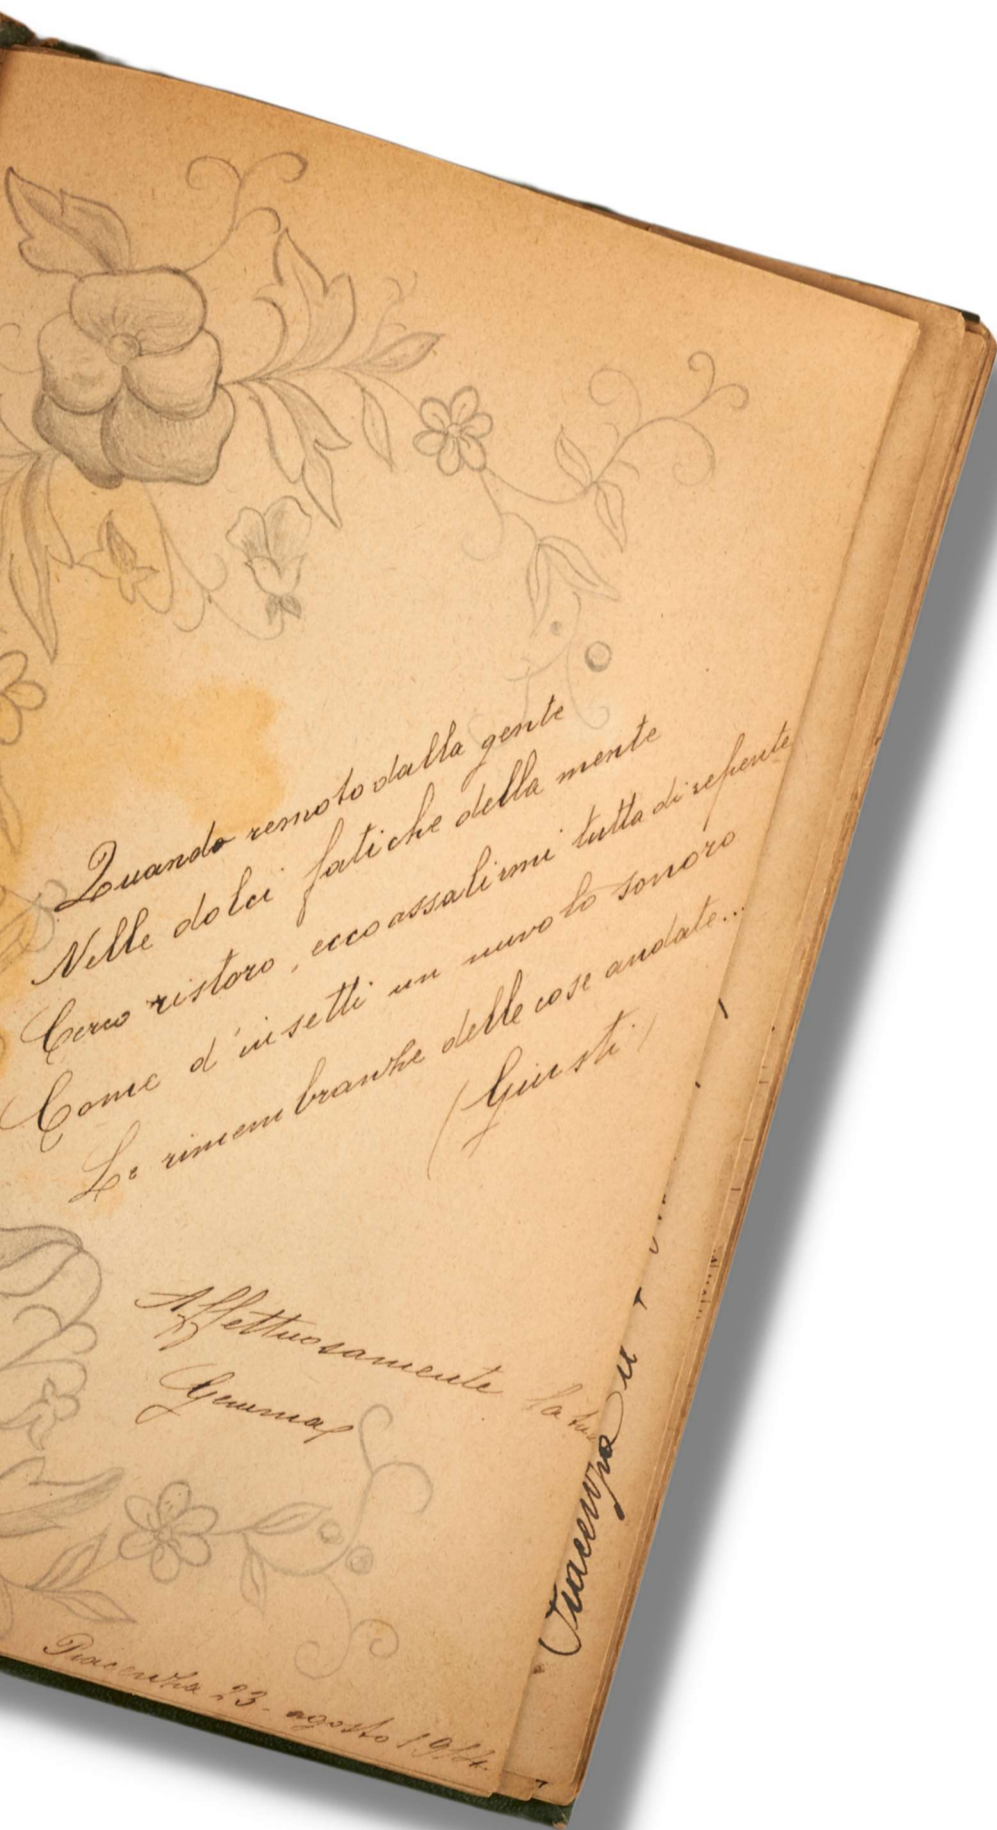 Quando remoto dalla gente
Nelle dolci fatiche della mente
Cerco ristoro, ecco assalirmi tutta di repente
Come d'insetti un nuvolo sonoro
Le rimembranze delle cose andate...
(Giusti)
Affettuosamente la tua
Gemma
Piacenza 23 - agosto 1914.
Piacenza